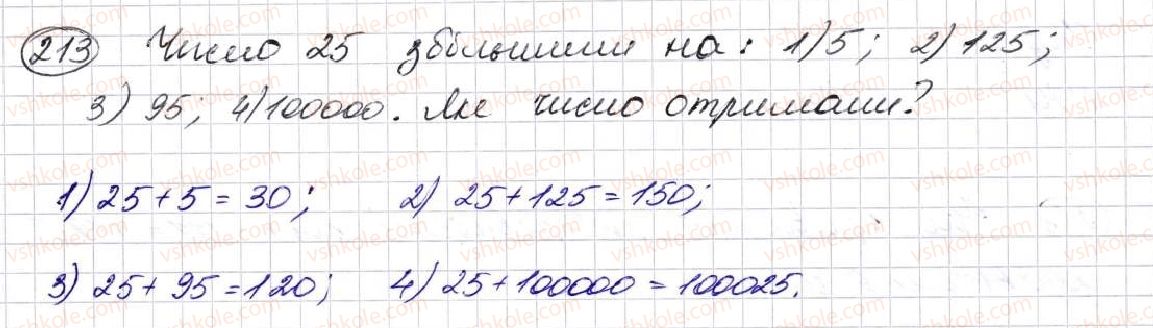 213 Число 25 збільшили на: 1) 5; 2) 125;
3) 95; 4) 100000. Яке число отримали?
1) 25 + 5 = 30; 2) 25 + 125 = 150;
3) 25 + 95 = 120; 4) 25 + 100000 = 100025.